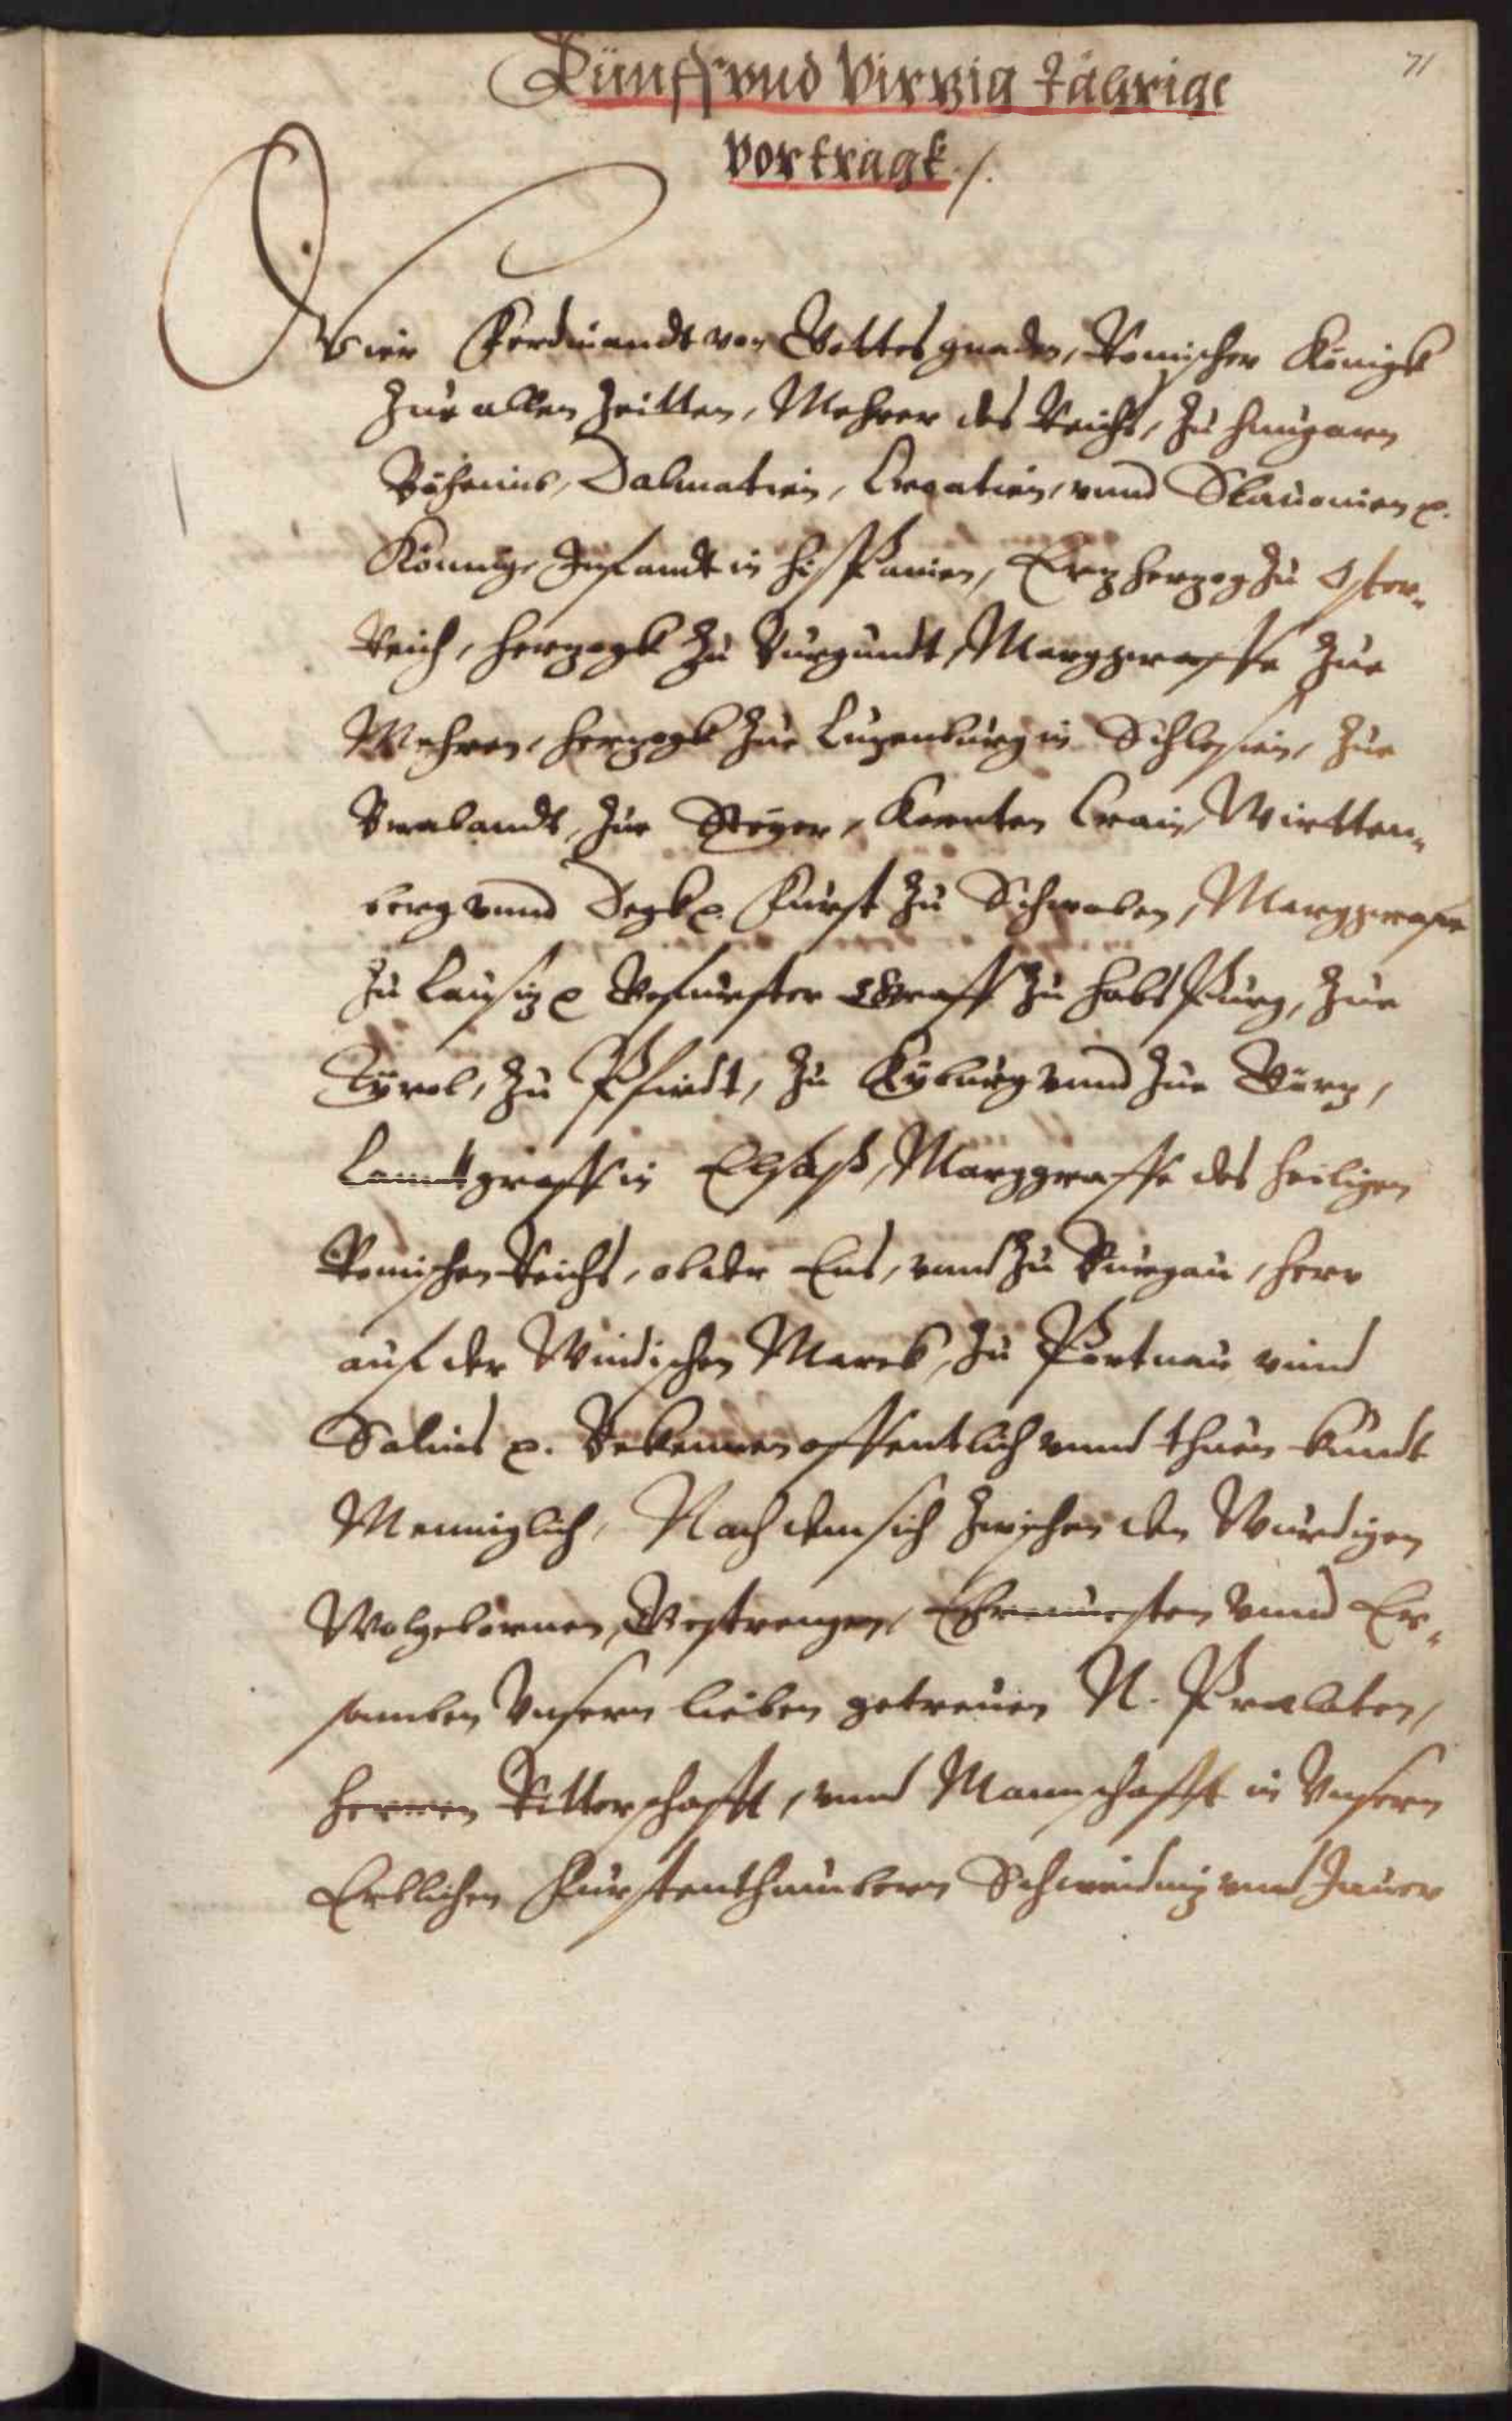 71
Fünff vnd Virzig Jährige
vortragk ./.
Wier Ferdinandt von Gottes gnaden, Romischer Königk
Zue allen Zeitten, Mehrer des Reichs, Zu Hungarn
Böheimb, Dalmatien, Croatien, vnnd Sclauonien ꝛc.
Könnig, Infandt in Hispanien, Erzherzog Zu Oster-
Reich, Herzogk Zu Burgundt, Marggraffe Zue
Mehren, Herzogk Zue Luzenburg in Schlesien, Zue
Brabandt, Zue Steyer, Kernten Crain, Wirtten-
berg vnnd Degk ꝛc. Furst Zu Schwaben, Marggraffe
Zu Lausiz ꝛc Gefurster Graff Zu Habspurg, Zue
Tyrol, Zu Pfirdt, Zu Kyburg vnnd Zue Görz,
Landtgraff in Elsaß, Marggraffe des heiligen
Romischen Reichs, ob der Ens, vnnd Zu Burgau, Herr
auf der Windischen Marck, Zu Portnau vnnd
Salins ꝛc. Bekennen offentlich vnnd thuen kundt
Menniglich, Nach dem sich Zwischen den Wurdigen
Wolgebornen, Gestrengen, Ehrnuesten vnnd Er-
samben Vnsern lieben getreuen N. Praelaten,
Herren Ritterschafft, vnnd Mannschafft in Vnsern
Erblichen Furstenthumbern Schweidniz vnnd Jauer